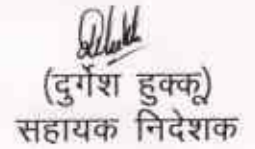 (दुर्गेश हुक्कू)
सहायक निदेशक